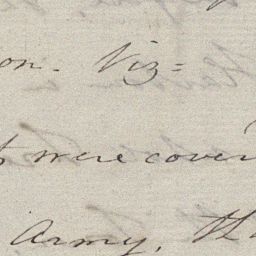 on. Viz=
were cover
Army. th